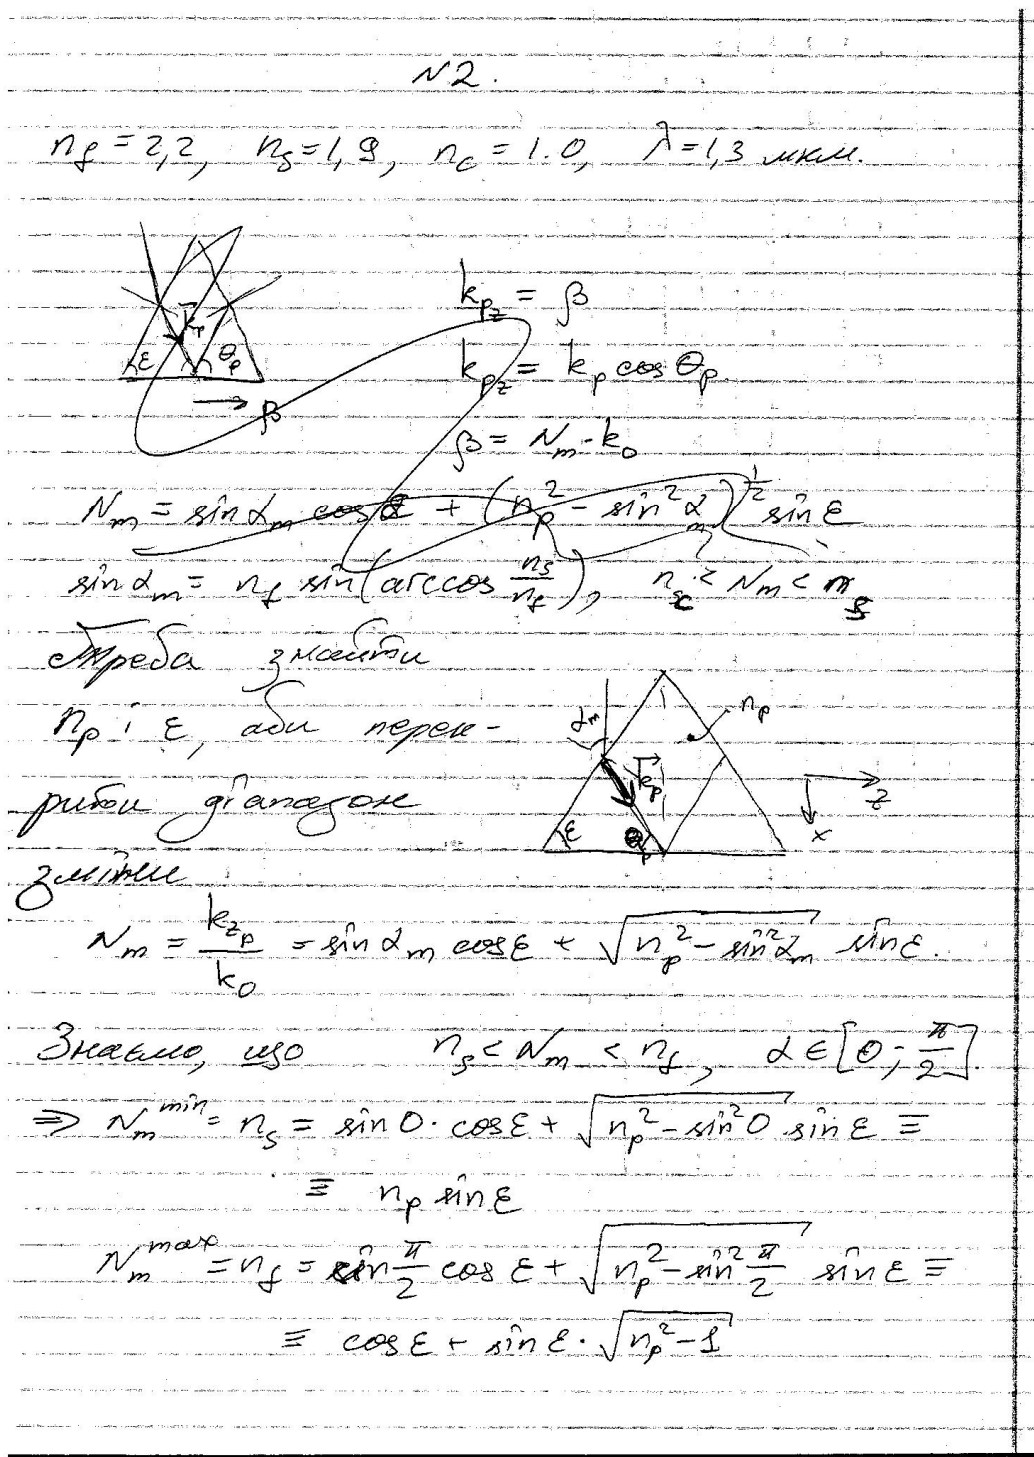 N2.
n_f = 2,2, n_s = 1,9, n_c = 1.0, λ = 1,3 мкм.
k_p ε θ_p β
k_pz = β
k_pz = k_p cos θ_p
β = N_m · k_0
N_m = sin α_m cos ε + (n_p^2 - sin^2 α_m)^{1/2} sin ε
sin α_m = n_f sin(arccos n_s/n_f), n_c < N_m < n_s
Треба знайти
n_p і ε, аби перек-
рити діапазон
зміни
α_m n_p k_p ε θ_p z x
N_m = k_zp/k_0 = sin α_m cos ε + √(n_p^2 - sin^2 α_m) sin ε.
Знаємо, що n_s < N_m < n_f, α ∈ [0; π/2].
⇒ N_m^min = n_s = sin 0 · cos ε + √(n_p^2 - sin^2 0) sin ε ≡
≡ n_p sin ε
N_m^max = n_f = sin π/2 cos ε + √(n_p^2 - sin^2 π/2) sin ε ≡
≡ cos ε + sin ε · √(n_p^2 - 1)